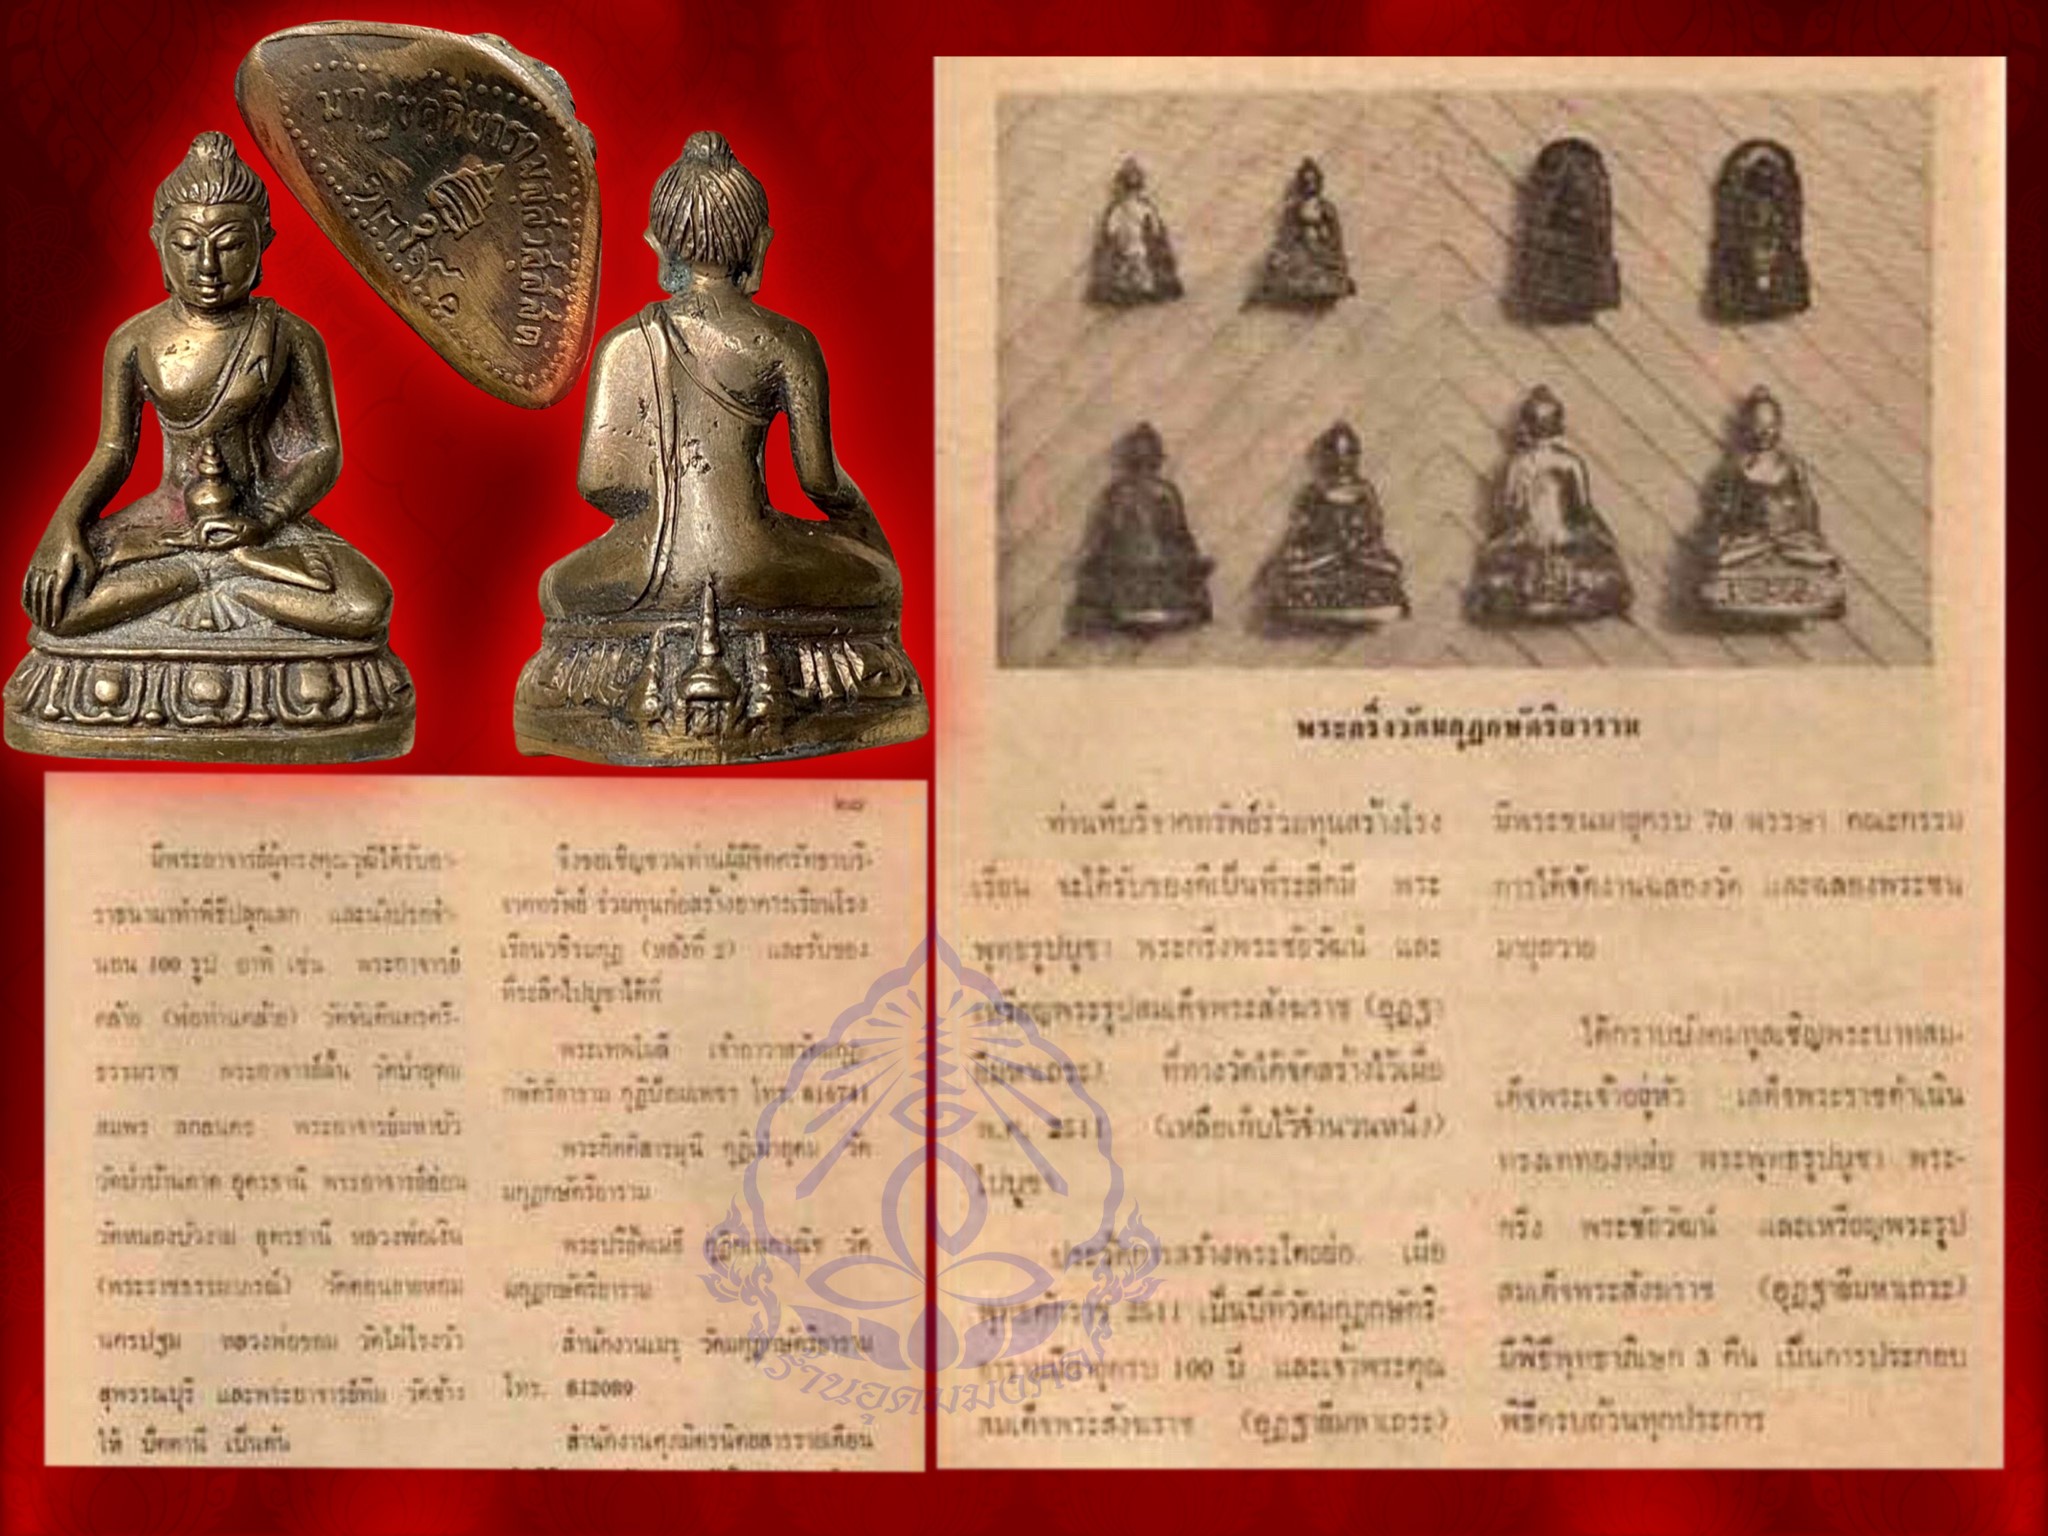 มกุฏขตฺติยารามสฺส
วสฺสสตํ
๒๔๗
มีพระอาจารย์ผู้ทรงคุณวุฒิได้รับอา-
ราธนามาทำพิธีปลุกเสก และนั่งปรกจำ-
นวน 100 รูป อาทิ เช่น พระอาจารย์
คล้าย (พ่อท่านคล้าย) วัดจันดีนครศรี-
ธรรมราช พระอาจารย์ฝั้น วัดป่าอุดม
สมพร สกลนคร พระอาจารย์มหาบัว
วัดป่าบ้านตาด อุดรธานี พระอาจารย์อ่อน
วัดหนองบัวงาม อุดรธานี หลวงพ่อเงิน
(พระราชธรรมาภรณ์) วัดดอนยายหอม
นครปฐม หลวงพ่อขอม วัดไผ่โรงวัว
สุพรรณบุรี และพระอาจารย์ทิม วัดช้าง
ให้ ปัตตานี เป็นต้น
จึงขอเชิญชวนท่านผู้มีจิตศรัทธาบริ-
จาคทรัพย์ ร่วมทุนก่อสร้างอาคารเรียนโรง
เรียนวชิรมกุฏ (หลังที่ 2) และรับของ
ที่ระลึกไปบูชาได้ที่
พระเทพโมลี เจ้าอาวาสวัดมกุฏ-
กษัตริยาราม กุฏินิยมเพชรา โทร. 816741
พระกิตติสารมุนี กุฏิเผ่าอุดม วัด
มกุฏกษัตริยาราม
พระปริยัติเมธี วัด
มกุฏกษัตริยาราม
สำนักงานเมรุ วัดมกุฏกษัตริยาราม
โทร. 812089
สำนักงานศุภมิตรนิตยสารรายเดือน
พระกริ่งวัดมกุฏกษัตริยาราม
ท่านที่บริจาคทรัพย์ร่วมทุนสร้างโรง
เรียน จะได้รับของดีเป็นที่ระลึกมี พระ
พุทธรูปบูชา พระกริ่งพระชัยวัฒน์ และ
เหรียญพระรูปสมเด็จพระสังฆราช (อุฏฐา
ยีมหาเถระ) ที่ทางวัดได้จัดสร้างไว้เมื่อ
พ.ศ. 2511 (เหลือเก็บไว้จำนวนหนึ่ง)
ไปบูชา
ประวัติการสร้างพระโดยย่อ เมื่อ
พุทธศักราช 2511 เป็นปีที่วัดมกุฏกษัตริ-
ยารามมีอายุครบ 100 ปี และเจ้าพระคุณ
สมเด็จพระสังฆราช (อุฏฐายีมหาเถระ)
มีพระชนมายุครบ 70 พรรษา คณะกรรม
การได้จัดงานฉลองวัด และฉลองพระชน
มายุถวาย
ได้กราบบังคมทูลเชิญพระบาทสม-
เด็จพระเจ้าอยู่หัว เสด็จพระราชดำเนิน
ทรงเททองหล่อ พระพุทธรูปบูชา พระ-
กริ่ง พระชัยวัฒน์ และเหรียญพระรูป
สมเด็จพระสังฆราช (อุฏฐายีมหาเถระ)
มีพิธีพุทธาภิเษก 3 คืน เป็นการประกอบ
พิธีครบถ้วนทุกประการ
ร้านอุดมมงคล